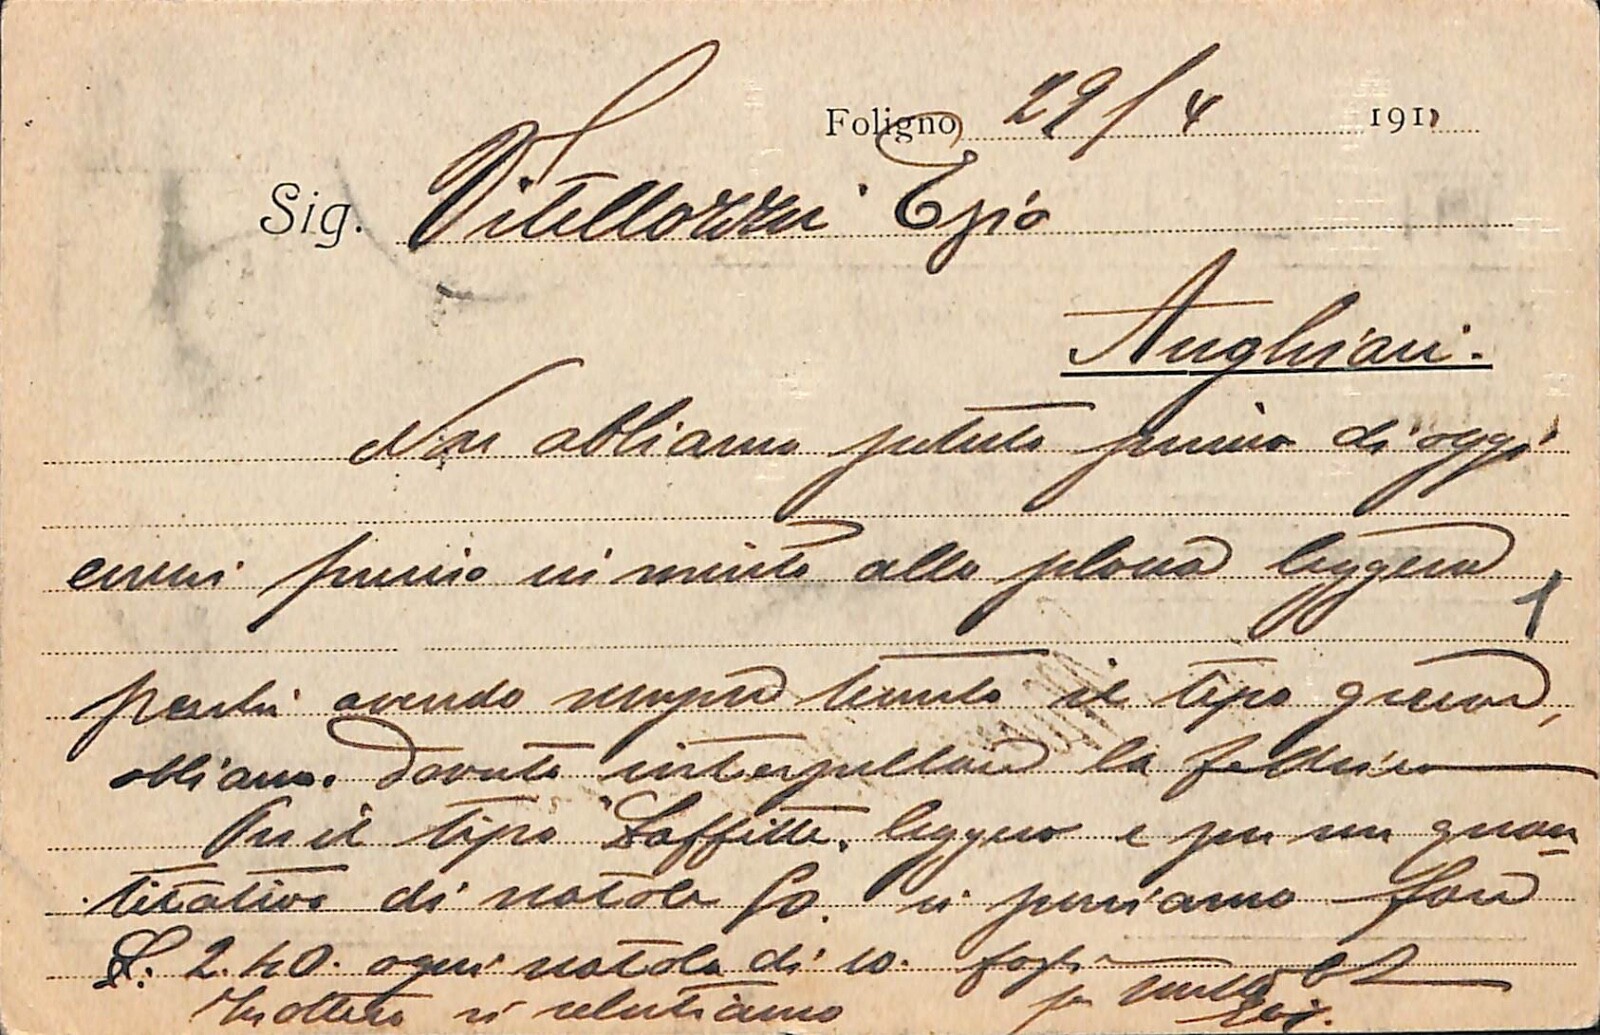 Foligno 29/4 1911
Sig. Vitellozzi Ezio
Anghiari.
Non abbiamo potuto prima di oggi
in merito alla leggera
perchè avendo sempre tenuto il tipo greve,
abbiamo dovuto interpellare la fabbrica
Per il tipo Laffitte leggero e per un quan
titativo di scatole 50. vi possiamo fare
L. 2.40. ogni scatola di 10. fogli
In attesa vi salutiamo